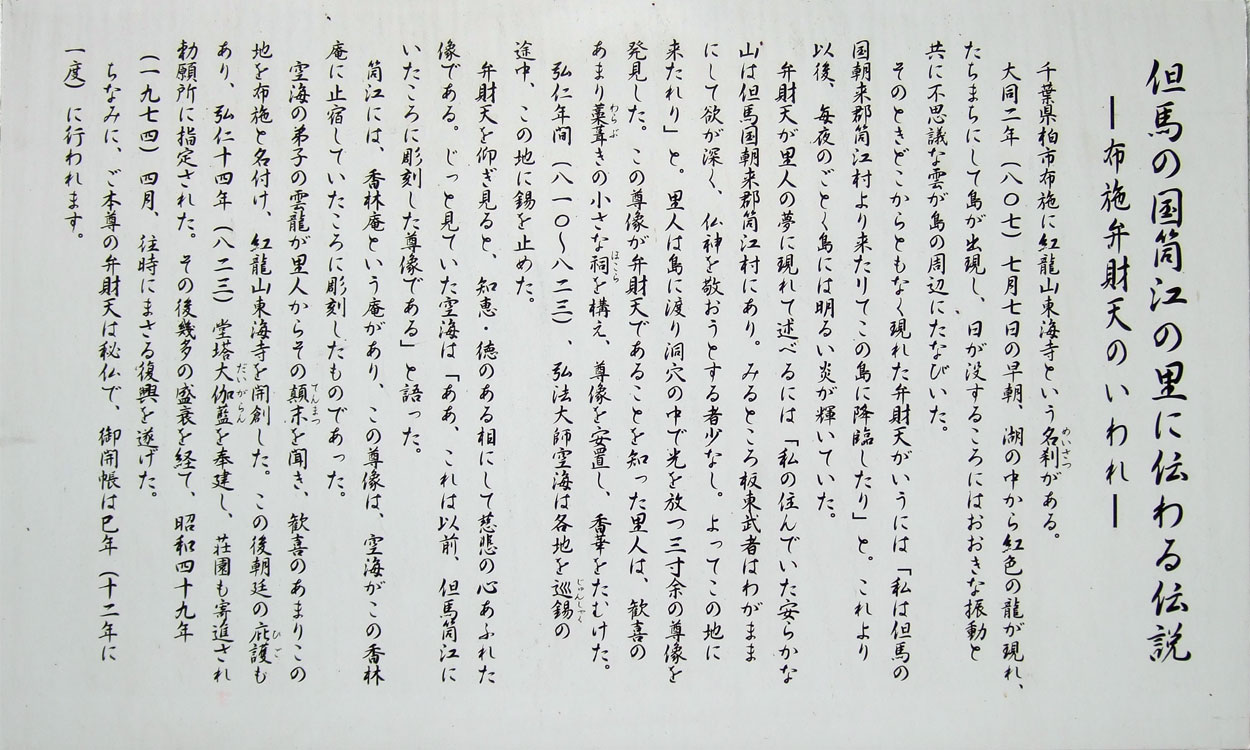 但馬の国筒江の里に伝わる伝説
―布施弁財天のいわれ―
千葉県柏市布施に紅龍山東海寺という名刹がある。
めいさつ
大同二年（八〇七）七月七日の早朝、湖の中から紅色の龍が現れ、
たちまちにして島が出現し、日が没するころにはおおきな振動と
共に不思議な雲が島の周辺にたなびいた。
そのときどこからともなく現れた弁財天がいうには「私は但馬の
国朝来郡筒江村より来たりてこの島に降臨したり」と。これより
以後、毎夜のごとく島には明るい炎が輝いていた。
弁財天が里人の夢に現れて述べるには「私の住んでいた安らかな
山は但馬国朝来郡筒江村にあり。みるところ板東武者はわがまま
にして欲が深く、仏神を敬おうとする者少なし。よってこの地に
来たれり」と。里人は島に渡り洞穴の中で光を放つ三寸余の尊像を
発見した。この尊像が弁財天であることを知った里人は、歓喜の
あまり藁葺きの小さな祠を構え、尊像を安置し、香華をたむけた。
わらぶ
ほこら
弘仁年間（八一〇～八二三）、弘法大師空海は各地を巡錫の
じゅんしゃく
途中、この地に錫を止めた。
弁財天を仰ぎ見ると、知恵・徳のある相にして慈悲の心あふれた
像である。じっと見ていた空海は「ああ、これは以前、但馬筒江に
いたころに彫刻した尊像である」と語った。
筒江には、香林庵という庵があり、この尊像は、空海がこの香林
庵に止宿していたころに彫刻したものであった。
空海の弟子の雲龍が里人からその顛末を聞き、歓喜のあまりこの
てんまつ
地を布施と名付け、紅龍山東海寺を開創した。この後朝廷の庇護も
ひご
あり、弘仁十四年（八二三）堂塔大伽藍を奉建し、荘園も寄進され
だいがらん
勅願所に指定された。その後幾多の盛衰を経て、昭和四十九年
（一九七四）四月、往時にまさる復興を遂げた。
ちなみに、ご本尊の弁財天は秘仏で、御開帳は巳年（十二年に
一度）に行われます。